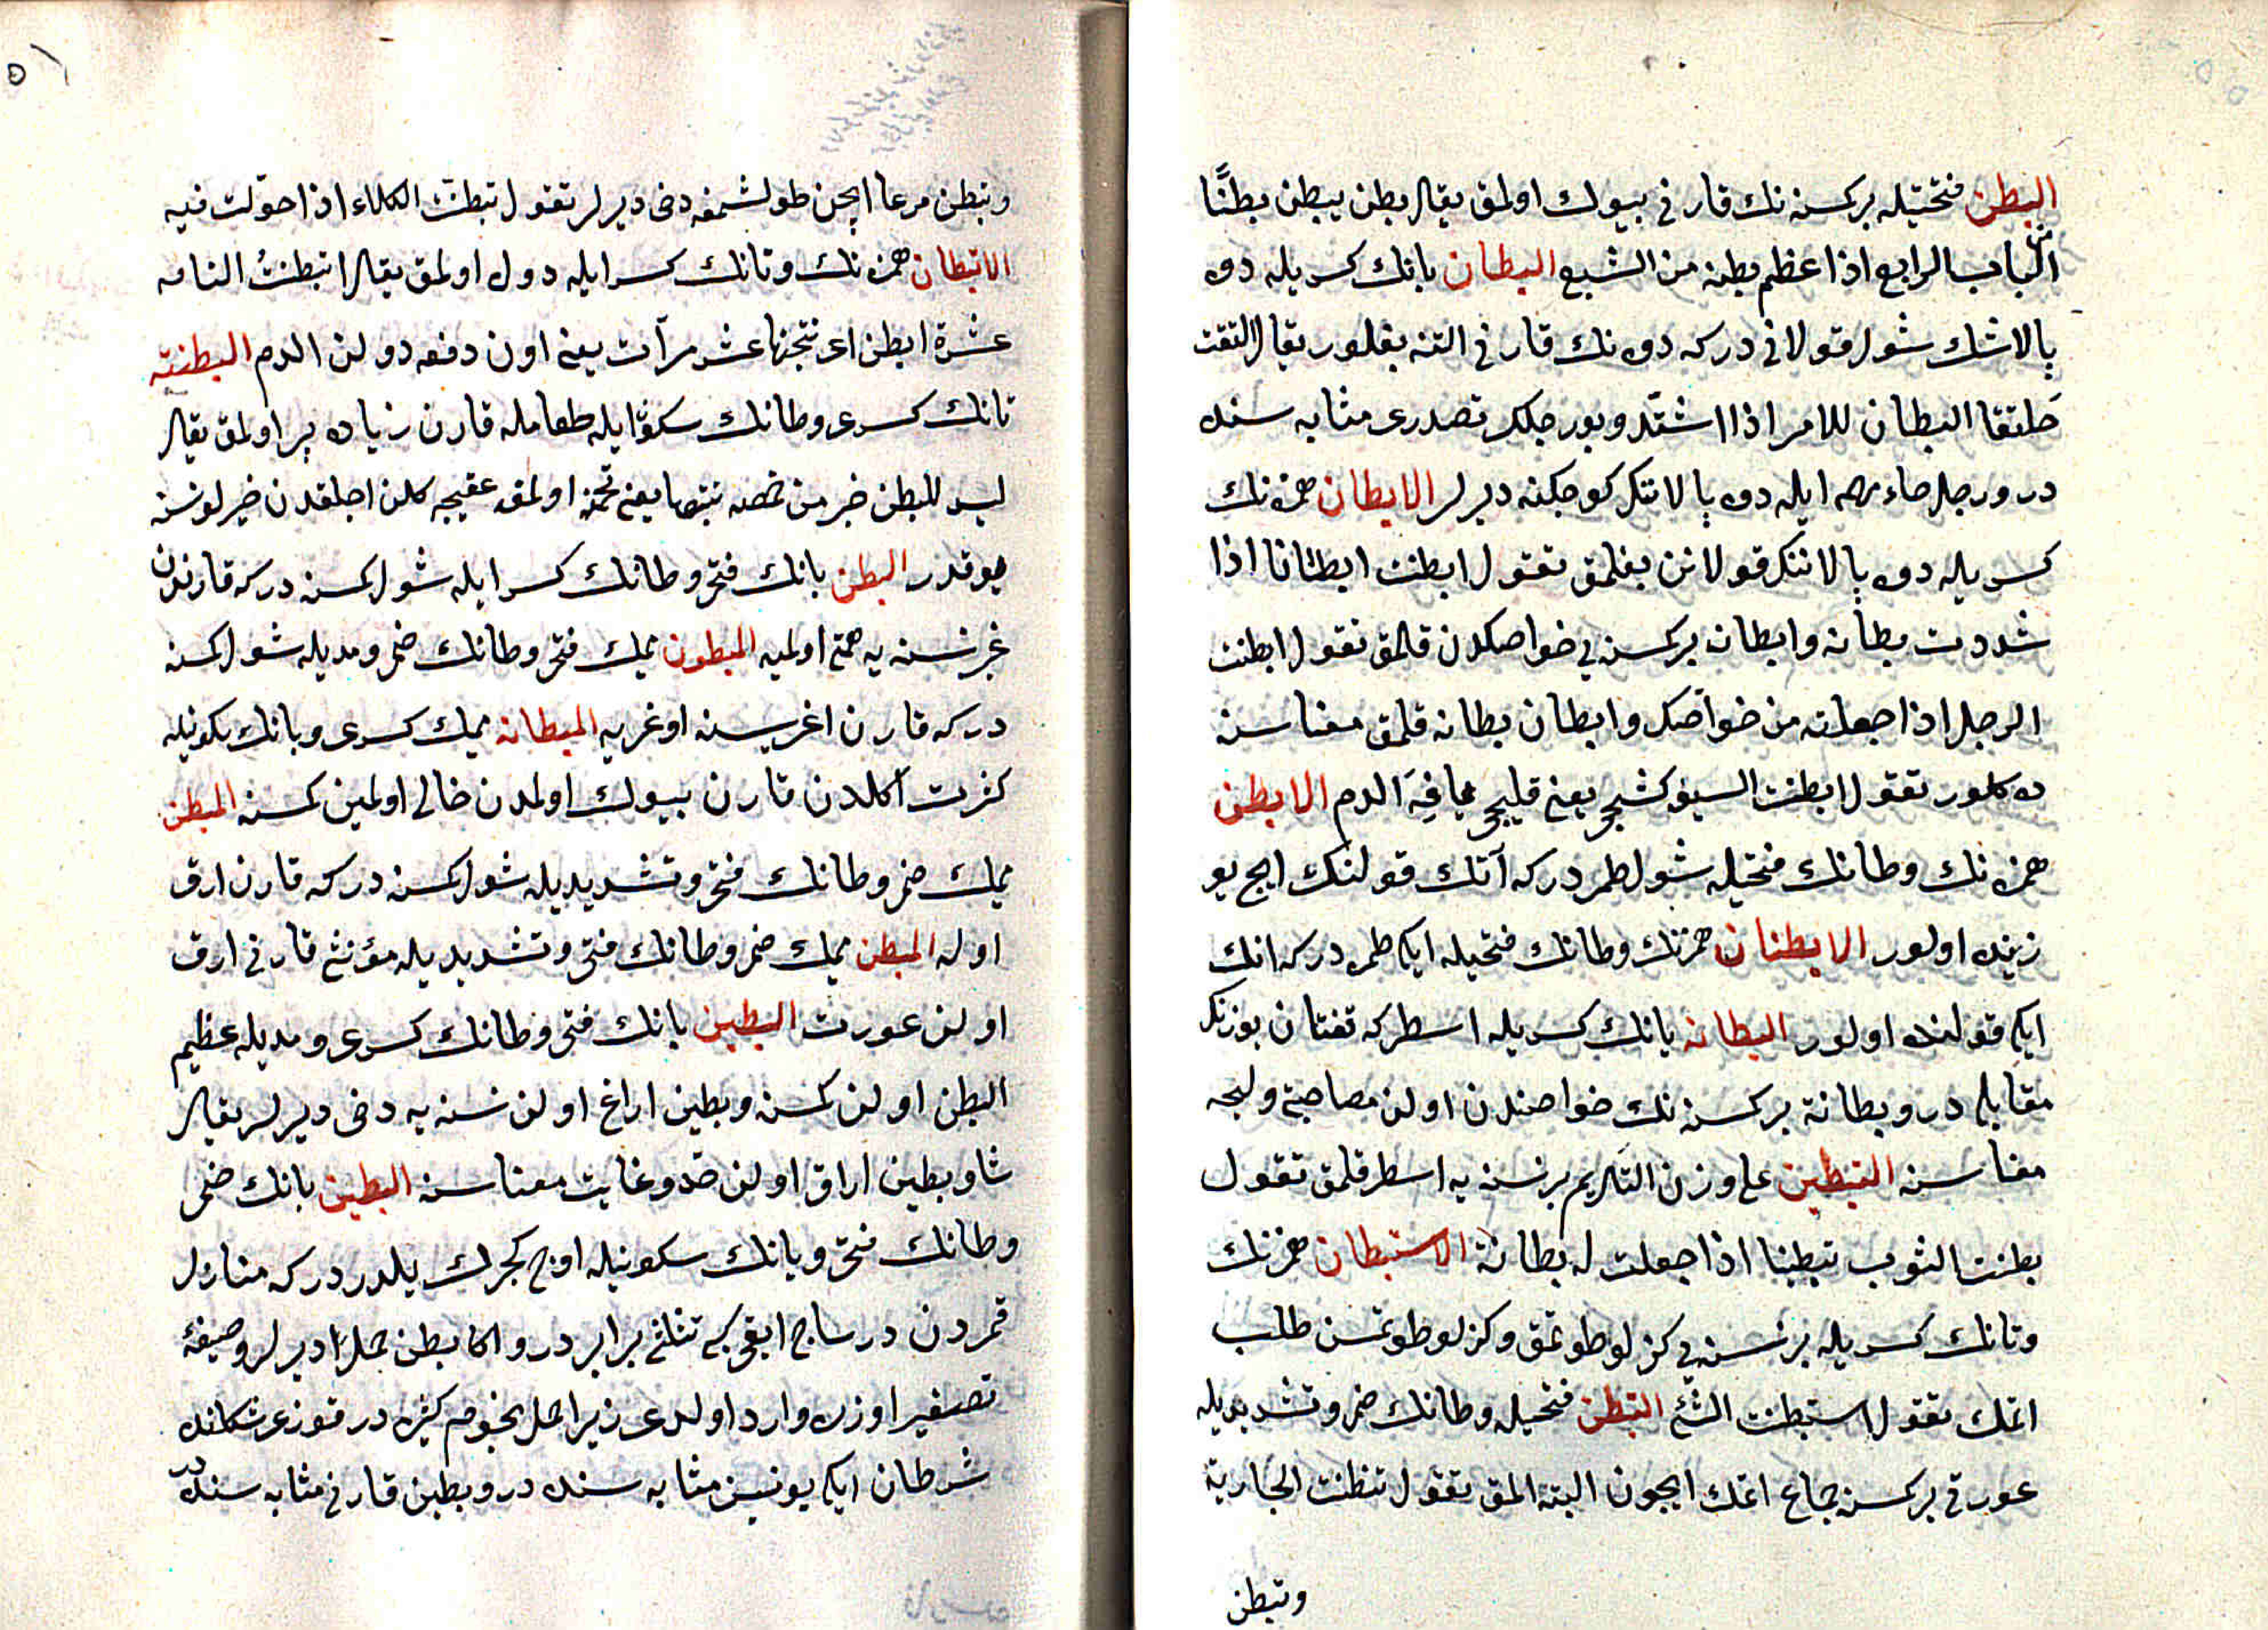 البطن فتحتيله بر كمسنه نك قارنى بيوك اولمق يقال بطن يبطن بطنًا
من الباب الرابع اذا عظم بطنه من الشبع البطان بانك كسريله دوه
بالاننك شول قولانى دركه دوه نك قارنى التنه بغلنور يقال التقت
حلقتا البطان للامر اذا اشتد وبو رجلك قصدرى مثابه سنده
در ورجل حاء مهمله ايله دوه بالاننك كوجكنه ديرلر الابطان همزه نك
كسريله دوه بالاننك قولانن بغلمق تقول ابطنت ابطانا اذا
شددت بطانه وابطان بر كمسنه يى خواصكدن قلمق تقول ابطنت
الرجل اذا جعلته من خواصك وابطان بطانه قلمق معناسنه
ده كلور تقول ابطنت السيف كشحى يعنى قليجى الدم الابطن
همزه نك وطانك فتحيله شول طمردركه آتك قولنك ايچ يو
زنده اولور الابطنان همزنك وطانك فتحيله ايكى طمردركه انك
ايكى قولنده اولور البطانه بانك كسريله اسطركه قفتان يوزنك
مقابلى در وبطانة بر كمسنه نك خواصندن اولن مصاحبى وليجه
معناسنه التبطين على وزن التكريم بر نسنه يه اسطر قلمق تقول
بطنت الثوب تبطينا اذا جعلت له بطانة الاستبطان همزنك
وتانك كسريله بر نسنه يى كزلو طوتمق وكزلو طوتمسن طلب
اتمك تقول استبطنت الشئ التبطن فتحيله وطانك ضم وتشديديله
عورتى بر كمسنه جماع اتمك ايچون الته المق تقول تبطنت الجارية
وتبطن
وتبطن مرعا ايچن طولشمغه دخى ديرلر تقول تبطنت الكلاء اذا جولت فيه
الابتطان همزه نك وتانك كسرايله دول اولمق يقال ابتطنت الناقه
عشرة ابطن اى نتجتها عشر مرآت يعنى اون دفعه دولن الدم البطنته
بانك كسرى وطانك سكونيله طعامله قارن زياده پر اولمق يقال
ليس للبطنه خير من خمصه تتبعها يعنى تخمه اولمق عقيبجه كلن اجلقدن خيرلو نسنه
يوقدر البطن بانك فتحى وطانك كسرايله شول كمسنه دركه قارنندن
غيرى نسنه يه همتى اولميه المبطون ميمك فتحى وطانك ضمى ومديله شول كمسنه
دركه قارن اغريسنه اوغريه المبطانه ميمك كسرى وبانك سكونيله
كثرت اكلدن قارن بيوك اولمدن خالى اولمين كمسنه المبطن
ميمك ضمى وطانك فتحى وتشديديله شول كمسنه دركه قارن ارق
اوله المبطن ميمك ضمى وطانك فتحى وتشديديله مؤنثى قارنى ارق
اولن عورت البطين بانك فتحى وطانك كسرى ومديله عظيم
البطن اولن كمسنه وبطين اراغ اولن نسنه يه دخى ديرلر يقال
شاو بطين اراق اولن حد وغايت معناسنه البطين بانك ضمى
وطانك فتحى ويانك سكونيله اوچ كجرك يلدزدركه منازل
قمردن در ساج ايقى كبى تثلثى برابر در واكا بطن حمل ديرلر وصيغهٔ
تصغير اوزره وارد اولدى زيرا حمل نجومه كثيره در قوزى شكلنده
شرطان ايكى بوينيزى مثابه سنده در وبطين قارنى مثابه سنده در